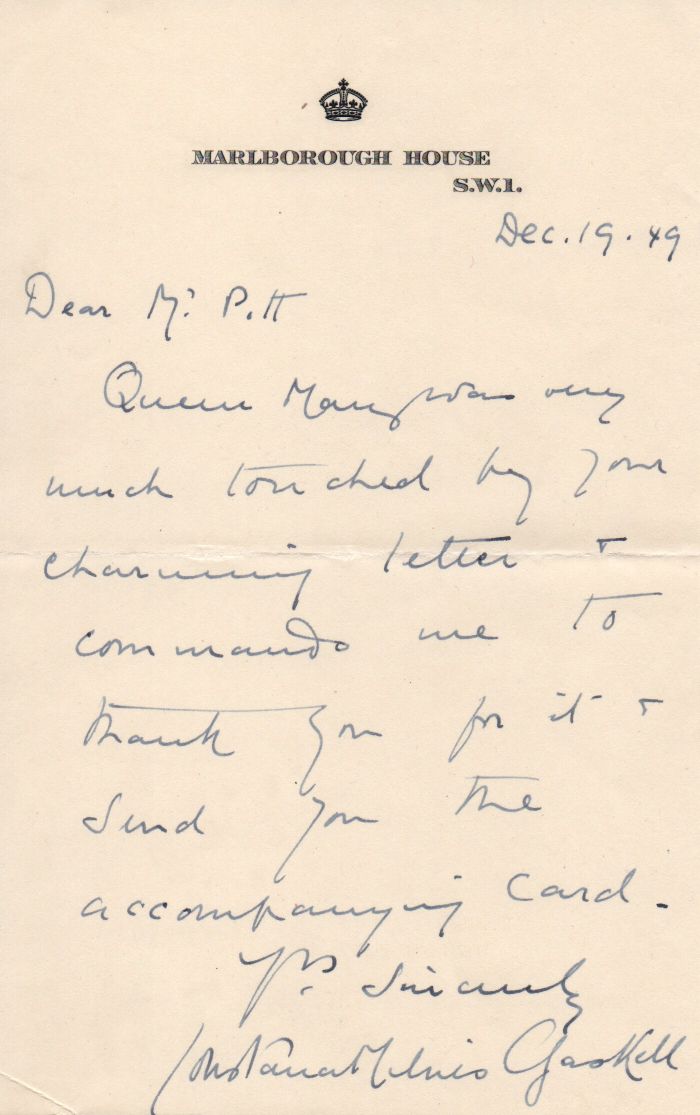 MARLBOROUGH HOUSE
S.W.1.
Dec. 19. 49
Dear Mr. Pitt
Queen Mary was very
much touched by your
charming letter &
commands me to
thank you for it &
send you the
accompanying card.
Yrs. Sincerely
Constance Milnes Gaskell